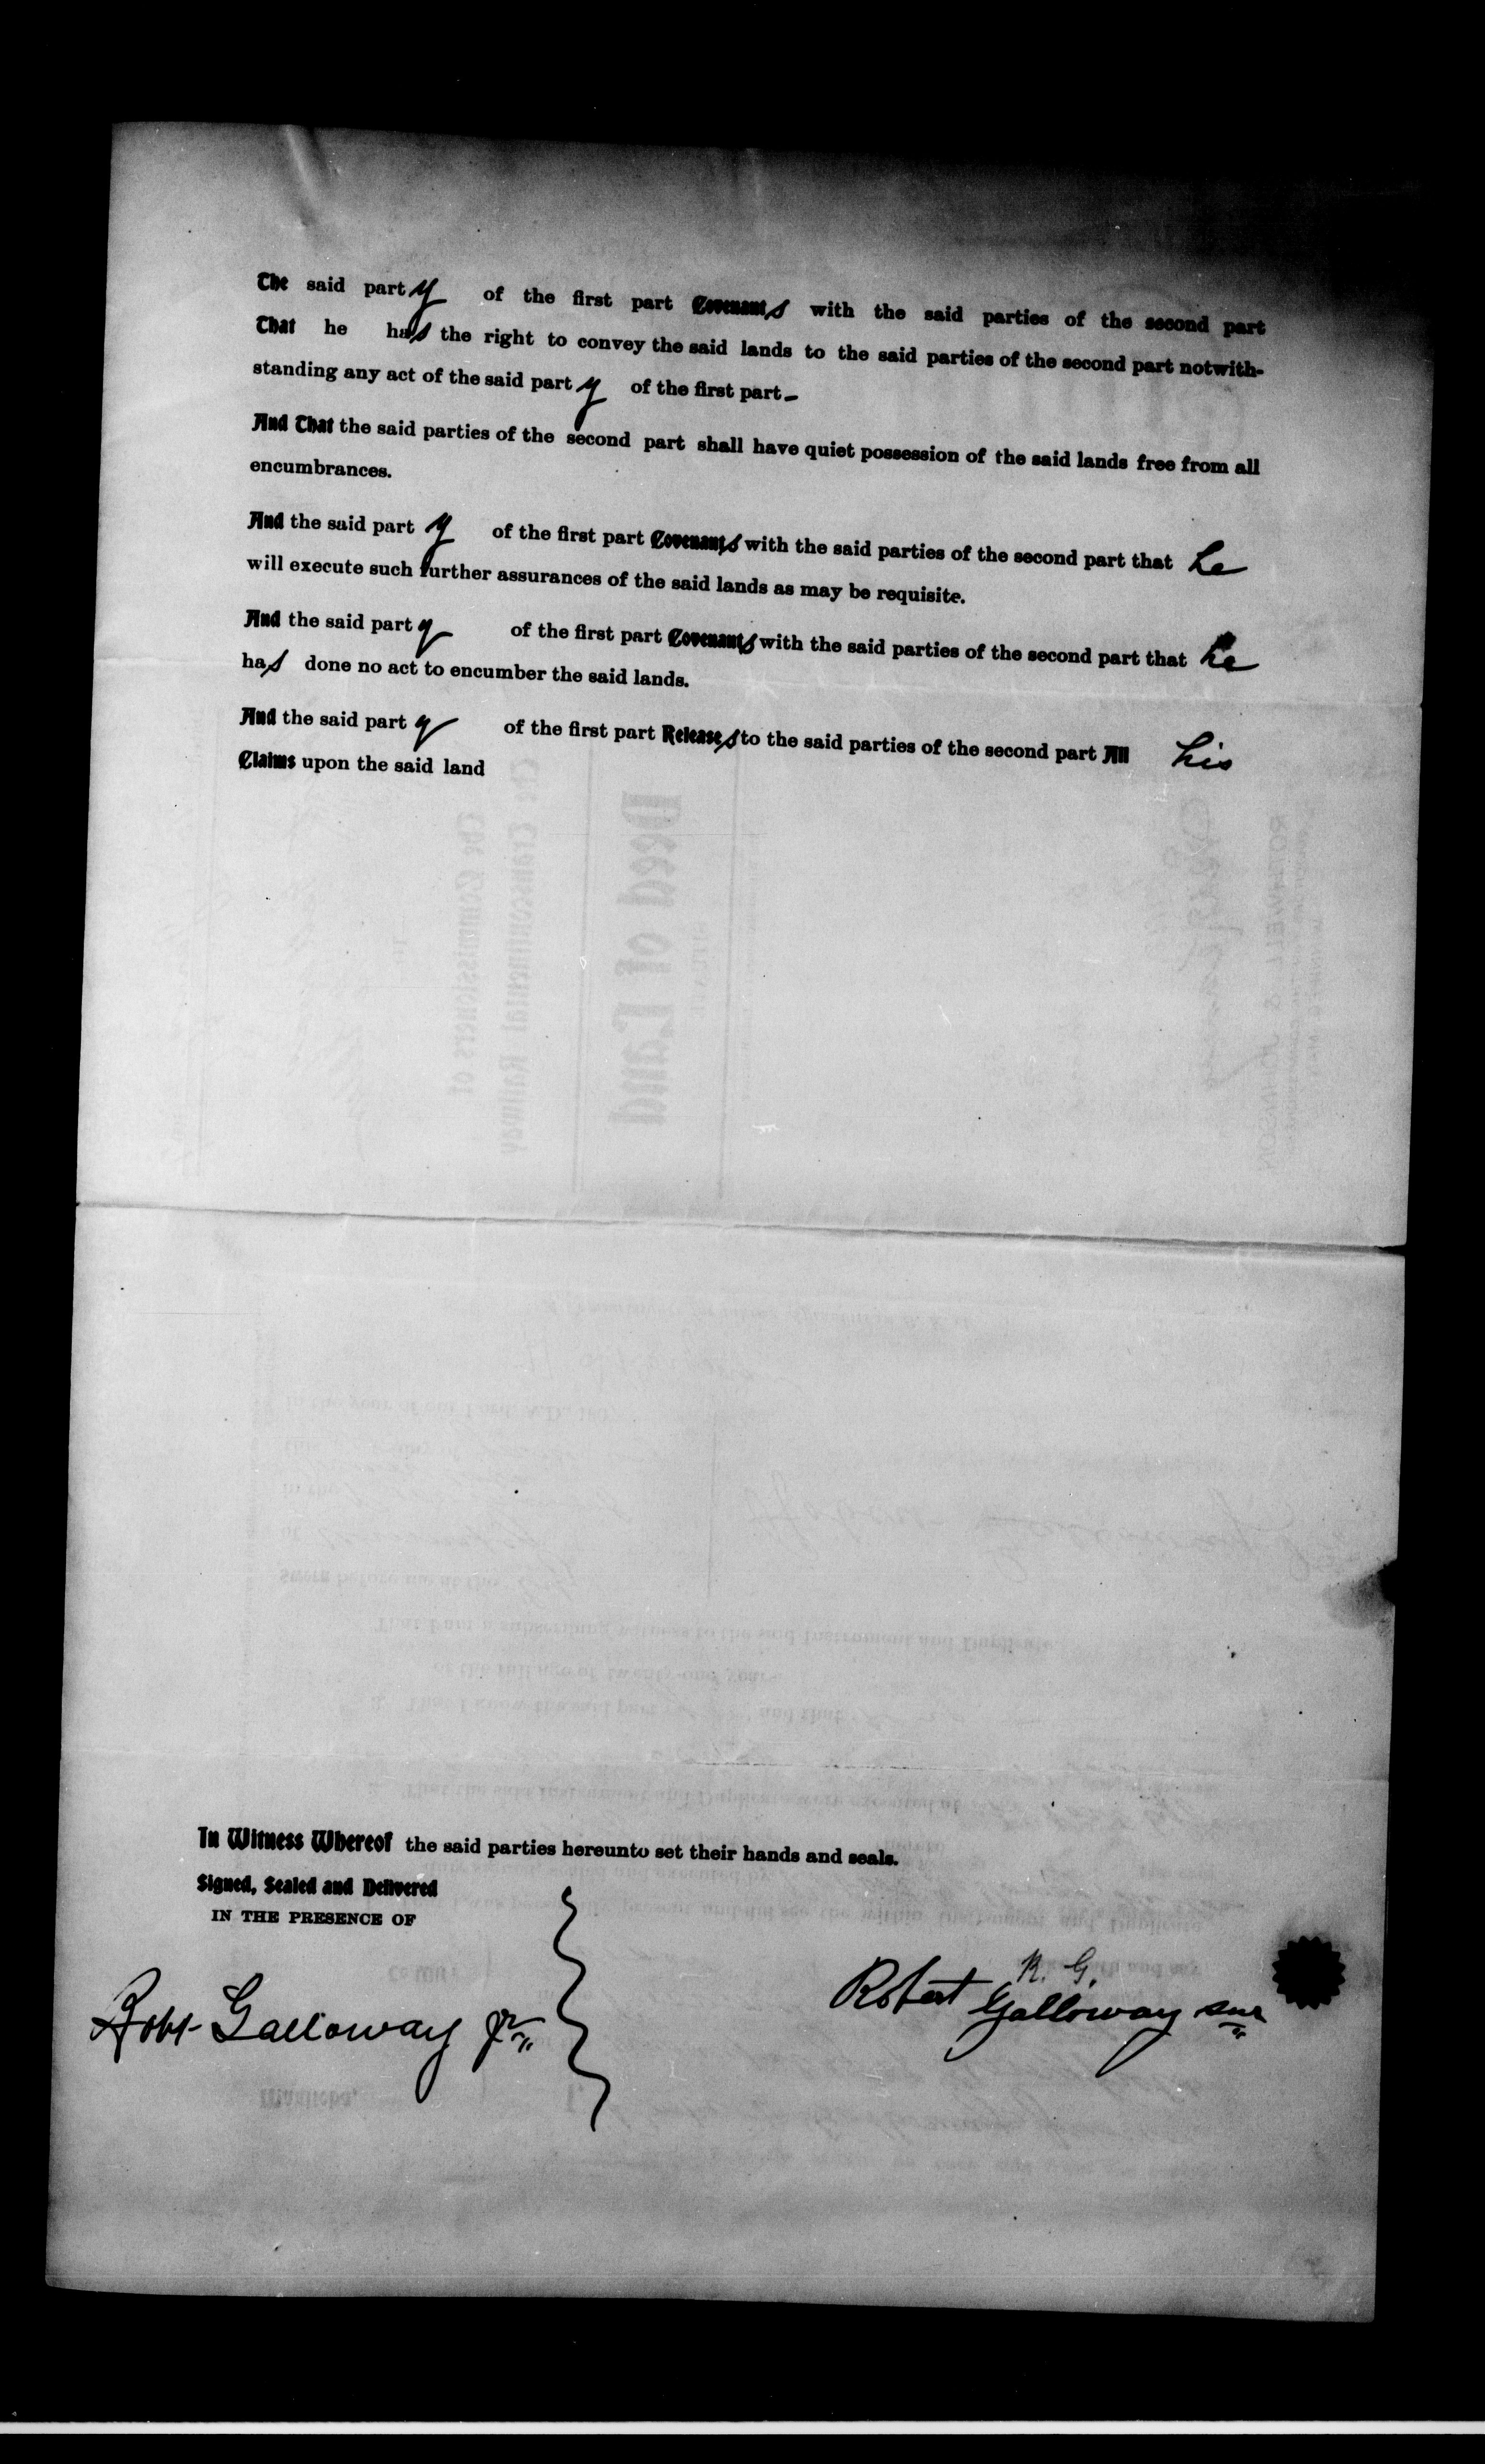 The said party of the first part Covenants with the said parties of the second part
That he has the right to convey the said lands to the said parties of the second part notwith-
standing any act of the said party of the first part-
And That the said parties of the second part shall have quiet possession of the said lands free from all
encumbrances.
And the said party of the first part Covenants with the said parties of the second part that he
will execute such further assurances of the said lands as may be requisite.
And the said party of the first part Covenants with the said parties of the second part that he
has done no act to encumber the said lands.
And the said party of the first part Releases to the said parties of the second part All his
Claims upon the said land
In Witness Whereof the said parties hereunto set their hands and seals.
Signed, Sealed and Delivered
IN THE PRESENCE OF
Robt Galloway jr
R. G.
Robert Galloway snr